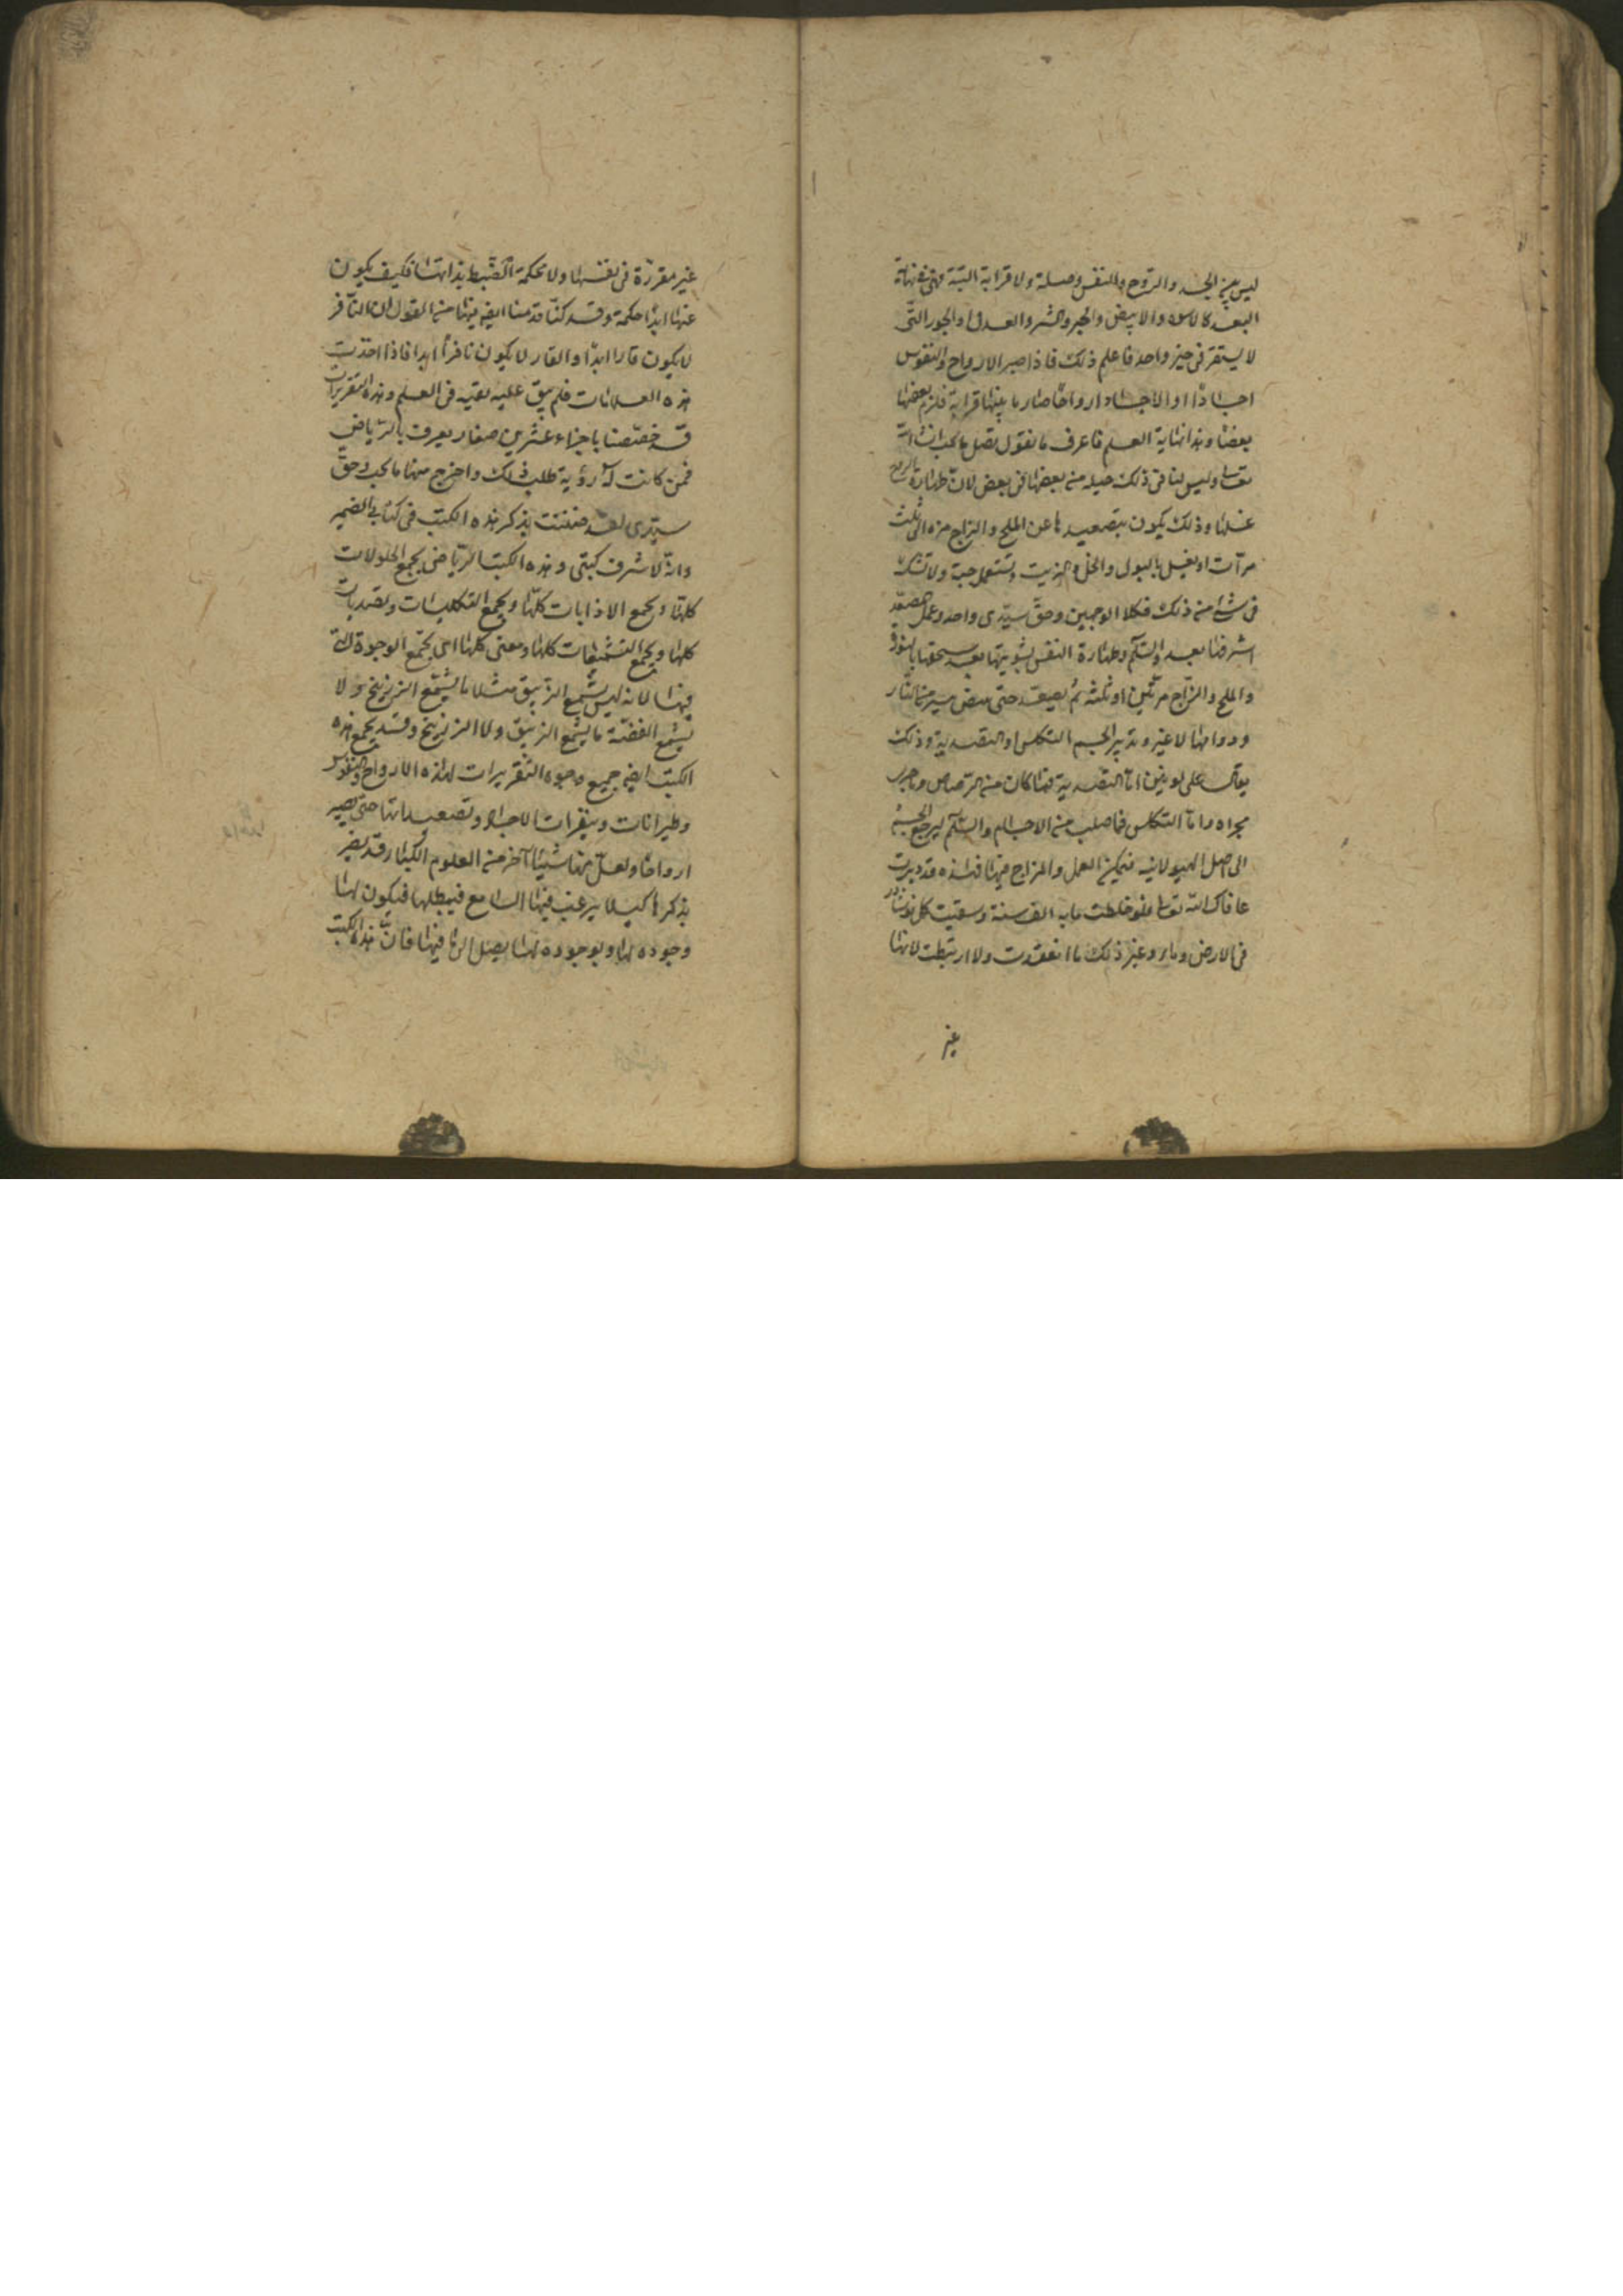 ليس بين الجسد والروح والنفس وصلة ولا قرابة البتة فهي في نهاية
البعد كالاسود والابيض والخير والشر والعدل والجور التي
لا يستقر في حيز واحد فاعلم ذلك فاذا صير الارواح والنفوس
اجسادًا او الاجساد ارواحًا صار ما بينها قرابة فلزم بعضها
بعضًا وهذا نهاية العلم فاعرف ما نقول تصل ما تحب ان شاء الله
تعالى وليس لنا في ذلك حيلة من بعضها في بعض لان طهارة الروح
غسلها وذلك يكون بتصعيدها عن الملح والزاج مرة الى ثلث
مرات او تغسل بالبول والخل والزيت وتستعمل حية ولا تشك
في شئ من ذلك فكلا الوجهين وحق سيدى واحد وعمل التصعيد
اشرفها بعد والسلم وطهارة النفس تشويتها بعد سحقها بالنوشادر
والملح والزاج مرتين او ثلثة ثم يصعد حتى من النار
ودوامها لا غير وتدبير الجسم التكلس او التصدية وذلك
يقال على لونين اما التصدية فما كان من الرصاص وما جرى
مجراه واما التكلس فما صلب من الاجسام والسلم ليرجع الجسم
الى اصل الهيولانية فيمكن العمل والمزاج فيها فهذه قد دبرت
عافاك الله تعالى فلو خلطت مايه الف سنة وسقيت كل نوشادر
في الارض وماء وغير ذلك ما انعقدت ولا ارتبطت لانها
غير
غير مقررة في نفسها ولا محكمة الضبط بذاتها فكيف يكون
عنها ابدًا حكمة وقد كنا قدمنا ايضًا فيها من القول ان النافر
لا يكون قارا ابدًا والقار لا يكون نافرًا ابدا فاذا اخذت
هذه العلامات فلم يبق عليه بقية في العلم وهذه التقريرات
قد خصصنا باجزاء عشرين صغار يعرف بالرياض
فمن كانت له رؤية طلب ذلك واخرج منها ما يحب وحق
سيدى لقد ضننت بذكر هذه الكتب في كتابي الضمير
وانه لاشرف كتبى وهذه الكتب الرياض يجمع الحلولات
كلها ويجمع الاذابات كلها ويجمع التكليسات وتصديات
كلها ويجمع التشميعات كلها ومعنى كلها اى يجمع الوجوه التى
فيها لانه ليس يشمع الزيبق مثلا ما يشمع الزرنيخ ولا
يشمع الفضة ما يشمع الزيبق ولا الزرنيخ وقد يجمع هذه
الكتب ايضًا جميع وجوه التقريرات لهذه الارواح والنفوس
وطيرانات وتنفيرات الاجساد وتصعيداتها حتى يصير
ارواحًا ولعل منا شيئًا آخر من العلوم الكبار قد يضر
بذكرها كيلا يرغب فيها السامع فيبطلها فيكون لها
وجوده لها وبوجوده لها يصل الى ما فيها فان هذه الكتب